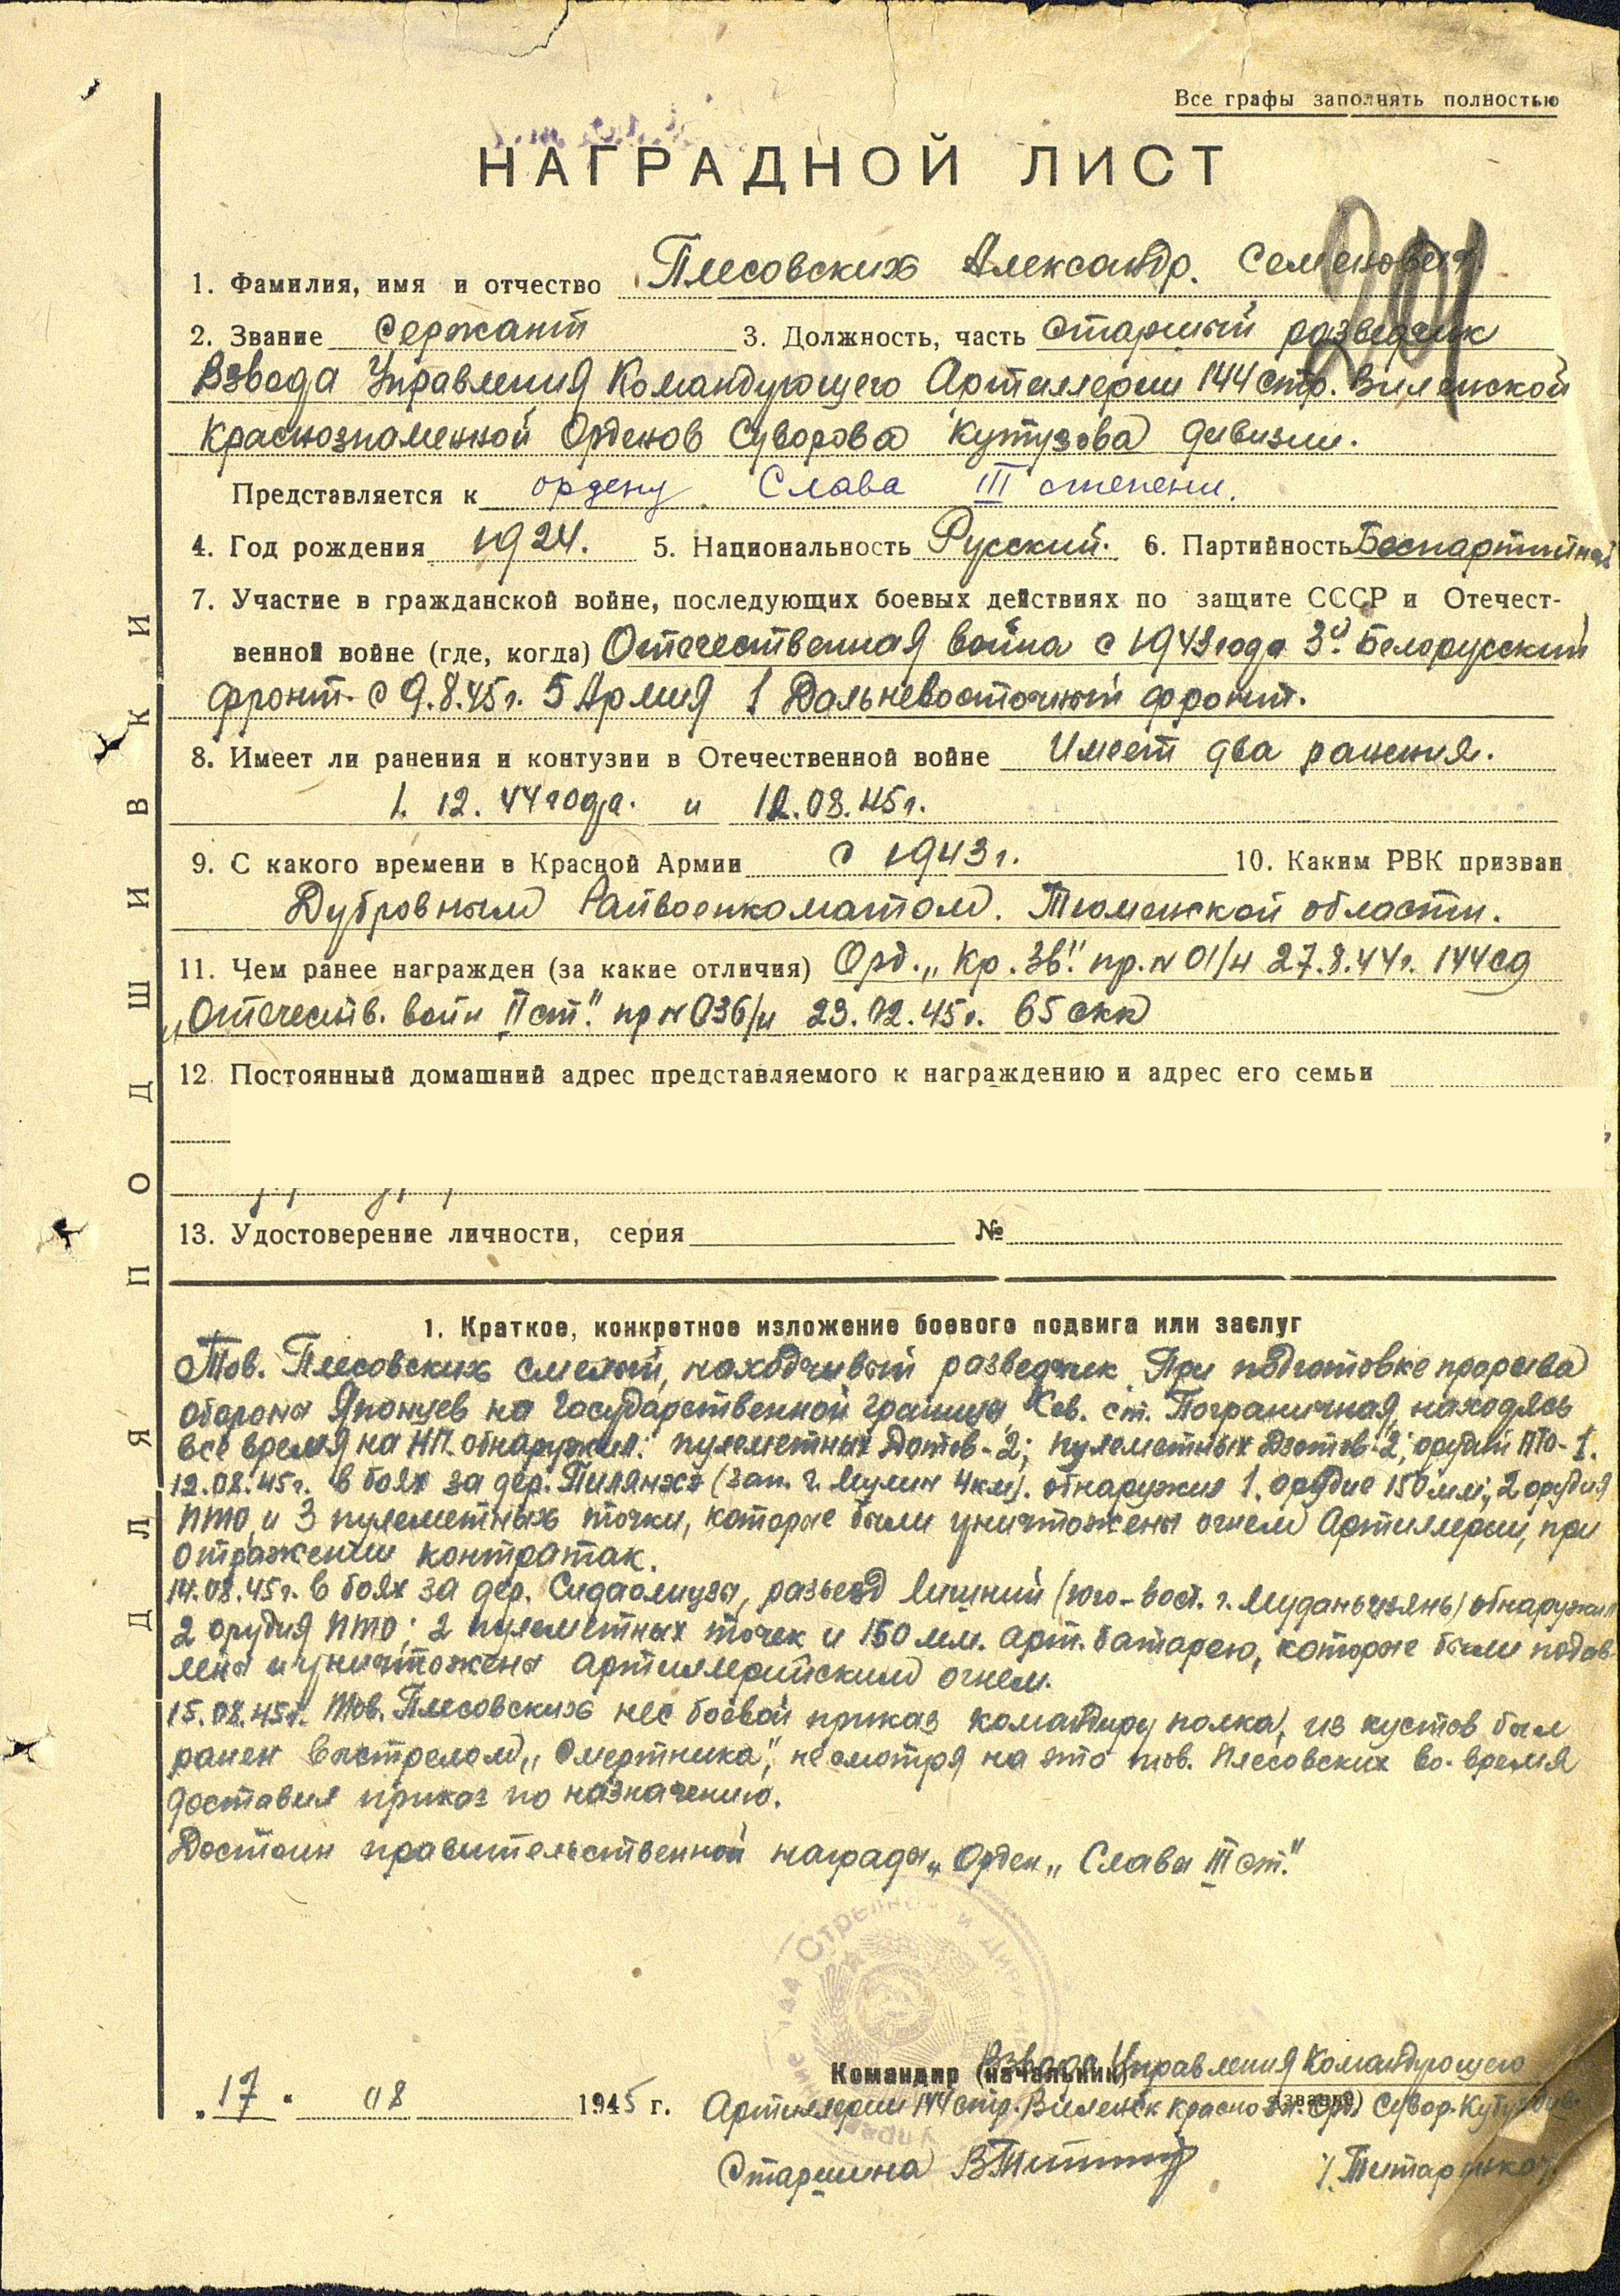 Все графы заполнять полностью
НАГРАДНОЙ ЛИСТ
201
1. Фамилия, имя и отчество Плесовских Александр. Семенович.
2. Звание Сержант 3. Должность, часть Старший разведчик
Взвода Управления Командующего Артиллерии 144 стр. Виленской
Краснознаменной Орденов Суворова Кутузова дивизии.
Представляется к ордену Слава III степени.
4. Год рождения 1924. 5. Национальность Русский. 6. Партийность Беспартийный
7. Участие в гражданской войне, последующих боевых действиях по защите СССР и Отечест-
венной войне (где, когда) Отечественная война с 1943 года 3й Белорусский
фронт. с 9.8.45г. 5 Армия 1 Дальневосточный фронт.
8. Имеет ли ранения и контузии в Отечественной войне Имеет два ранения.
1. 12. 44 года. и 12.08.45г.
9. С какого времени в Красной Армии с 1943г. 10. Каким РВК призван
Дубровным Райвоенкоматом. Тюменской области.
11. Чем ранее награжден (за какие отличия) Орд. „Кр. Зв." пр. N 01/н 27.8.44г. 144 сд
„Отечеств. войн II ст." пр N 036/н 23.02.45г. 65 скк
12. Постоянный домашний адрес представляемого к награждению и адрес его семьи
13. Удостоверение личности, серия №
1. Краткое, конкретное изложение боевого подвига или заслуг
Тов. Плесовских смелый, находчивый разведчик. При подготовке прорыва
обороны Японцев на Государственной границы, Сев. ст. Пограничная, находясь
все время на НП. обнаружил: пулеметных Дотов-2; пулеметных Дзотов-2; орудий ПТО-1.
12.08.45г. в боях за дер. Пилянхэ (зап. г. Мулин 4км). обнаружил 1. орудие 150мм; 2 орудия
ПТО, и 3 пулеметных точки, которые были уничтожены огнем Артиллерии, при
отражении контратак.
14.08.45г. в боях за дер. Сидаолицзы, разъезд Лишний (юго-вост. г. Муданьцзянь) обнаружил
2 орудия ПТО; 2 пулеметных точек и 150 мм. арт. батарею, которые были подав
лены и уничтожены артиллерийским огнем.
15.08.45г. Тов. Плесовских нес боевой приказ командиру полка, из кустов был
ранен выстрелом „Смертника", не смотря на это тов. Плесовских во-время
доставил приказ по назначению.
Достоин правительственной награды „Орден „Славы III ст."
Командир (начальник) Взвода Управления Командующего
„17" 08 1945 г. Артиллерии 144 стр. Виленск Краснозн. Орд Сувор. Кутуз див.
(звание)
Старшина /Титаренко/.
ДЛЯ ПОДШИВКИ